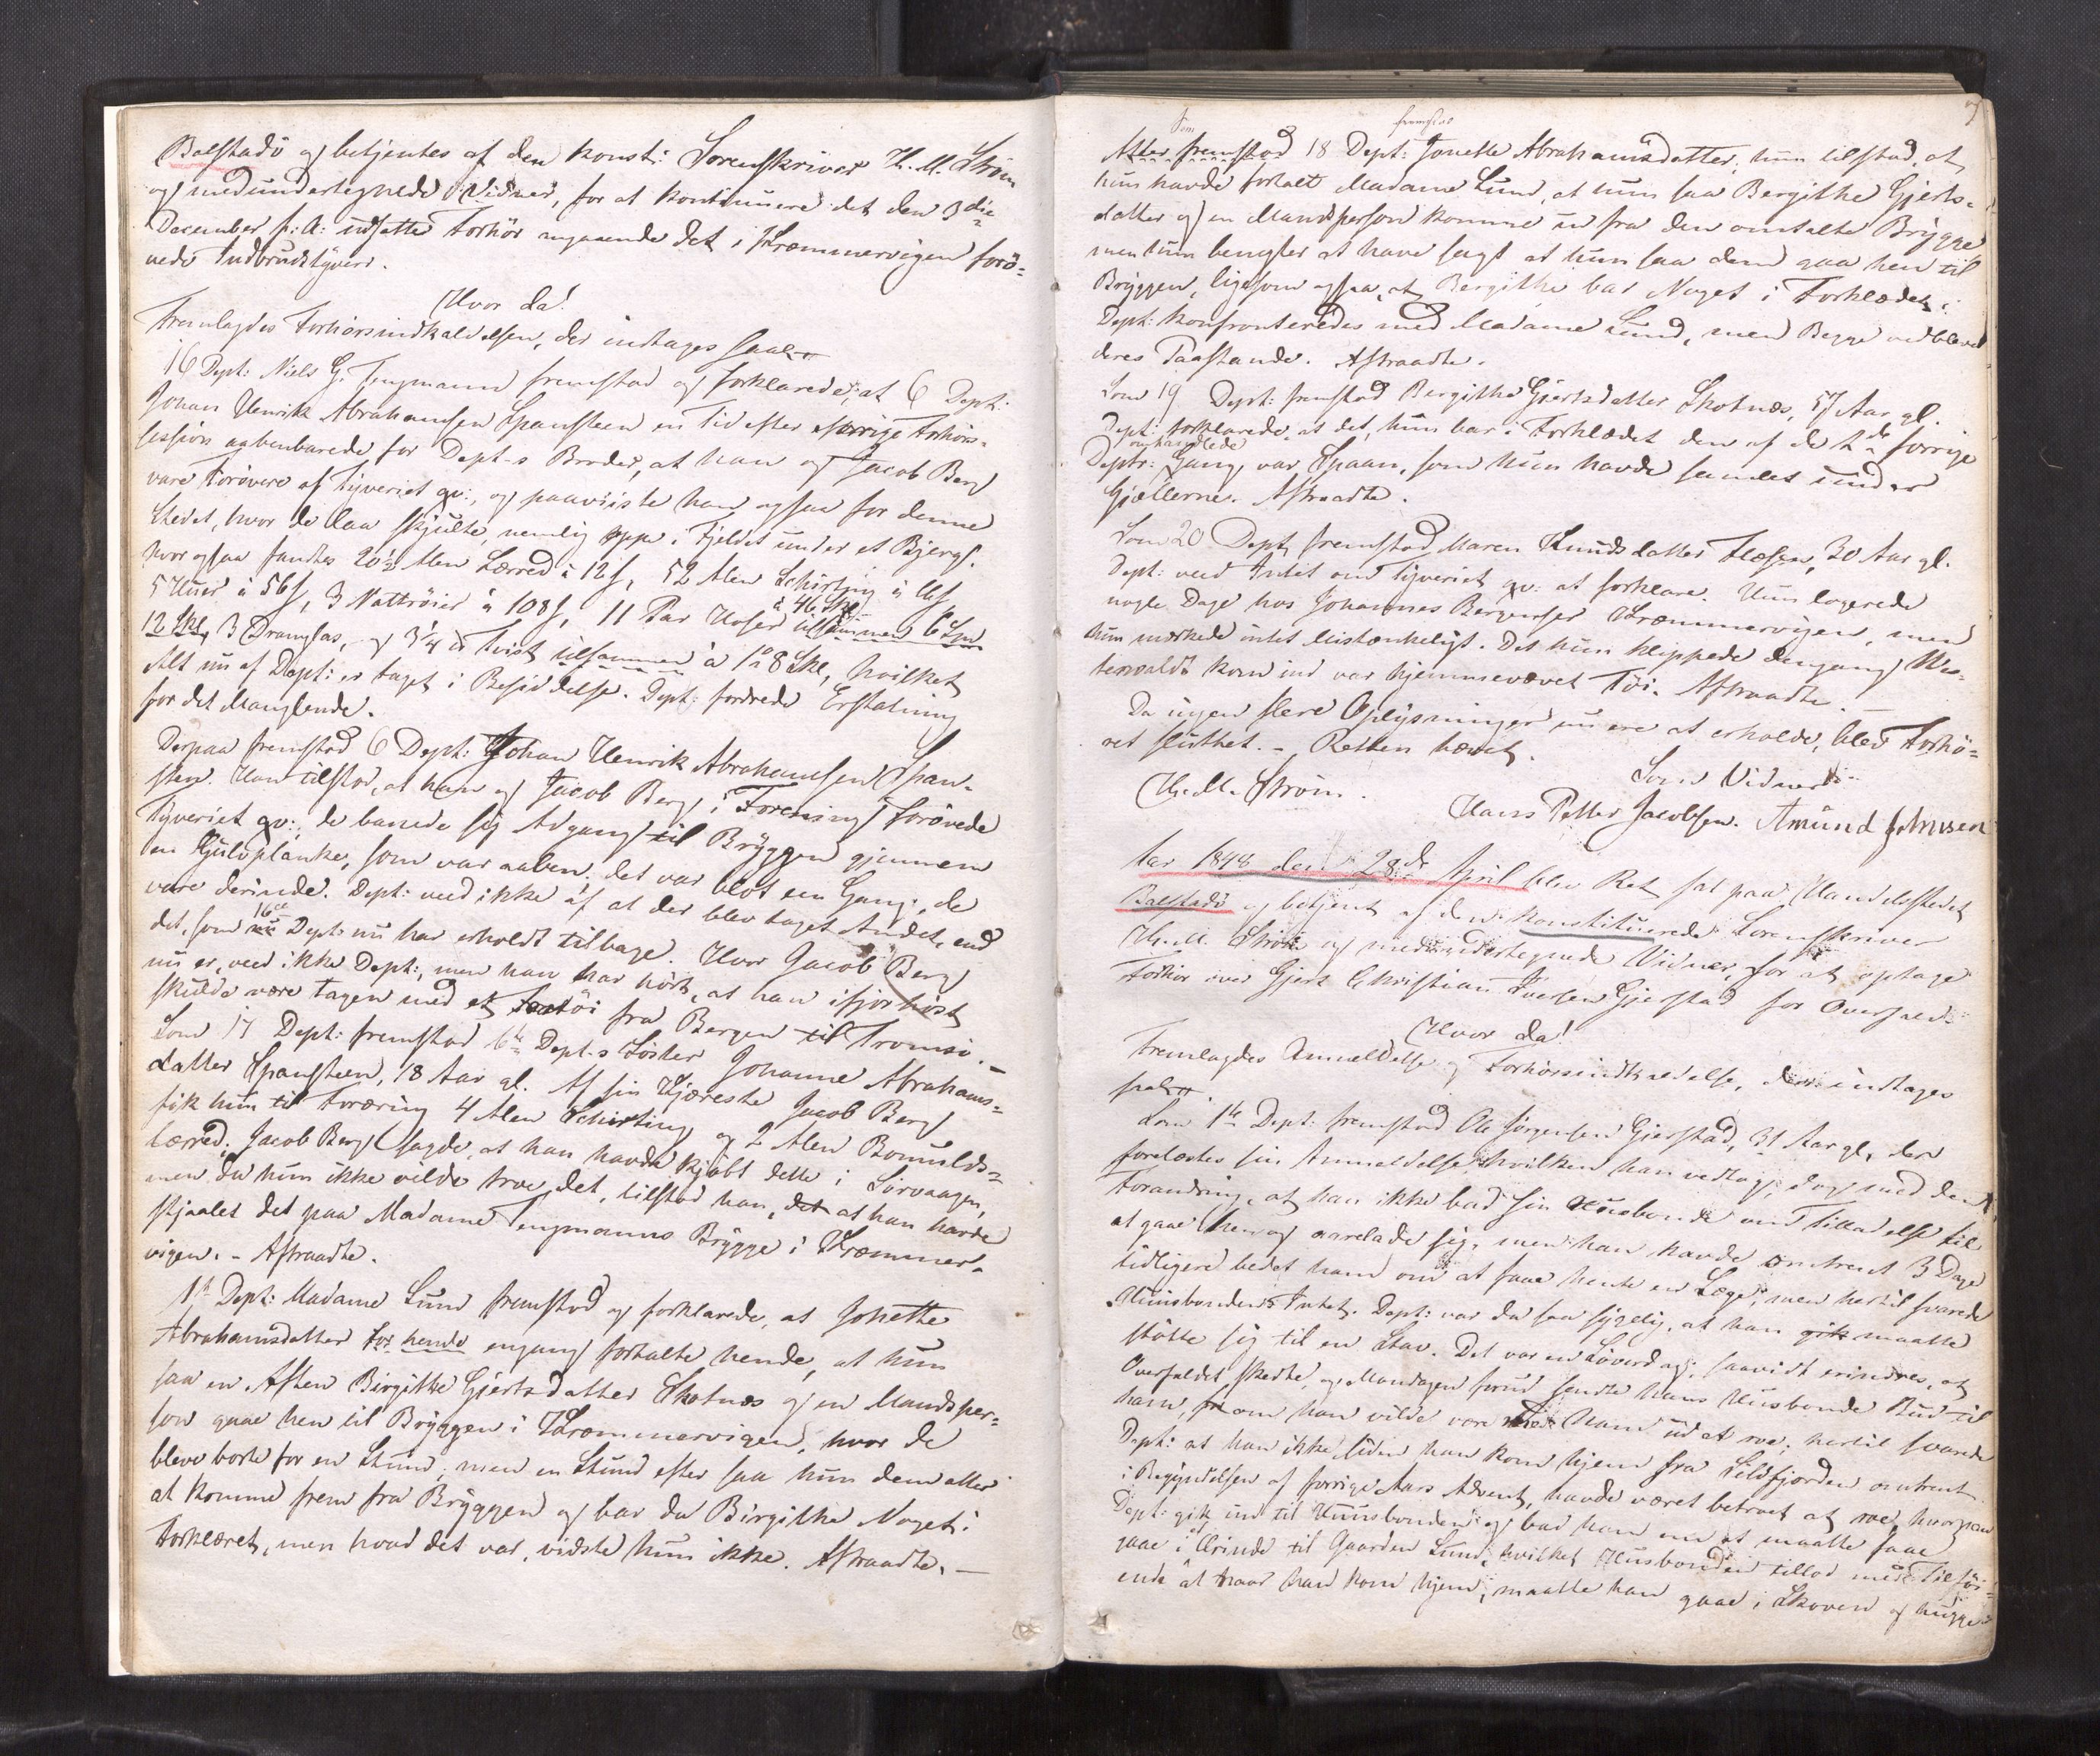 Balstadö og betjentes af den konst: Sorenskriver H. M. Ström
og medundertegnede Vidner, for at kontinuere det den 3die
December f: A: udsatte Forhör angaaende det i Kræmmervigen forö=
vede Indbrudstyveri.
Hvor da!
Fremlagdes Forhörsindkaldelsen, der indtages saal:
16 Dept: Niels G. Jengmann fremstod og forklarede, at 6 Dept:
Johan Henrik Abrahamsen Spansteen en Tid efter forrige Forhörs-
session aabenbarede for Dept-s Broder, at han og Jacob Berg
vare Forövere af Tyveriet qv:, og paaviiste han ogsaa for denne
Stedet, hvor de laa skjulte, nemlig oppe i Fjeldet under et Bjerg.
hvor ogsaa fandtes 20½ Alen Lærred à 12 ſ, 52 Alen Schirting à
5 Huer à 56 ſ, 3 Nattröier à 108 ſ, 11 Par Hoser tilsammen 6 Spd
à 46 Skl
12 Skl, 3 Dramglas, og 3¼ Tvist tilsammen à 8 Skl, hvilket
Alt nu af Dept: er taget i Besiddelse. Dept: fordrede Erstatning
for det Manglende.
Derpaa fremstod 6 Dept: Johan Henrik Abrahamsen Span-
steen. Han tilstod, at han og Jacob Berg i Forening forövede
Tyveriet qv:, de banede sig Adgang til Bryggen gjennem
en Gulvplanke, som var aaben; det var blot en Gang, de
vare derinde. Dept: veed ikke af at der blev taget Andet, end
det, som 16de Dept: nu har erholdt tilbage. Hvor Jacob Berg
nu er, veed ikke Dept:, men han har hört, at han ifjor höst
skulde være tagen med et Fartöi fra Bergen til Tromsö. –
Som 17 Dept: fremstod 6te Dept-s Söster Johanne Abrahams=
datter Spansteen, 18 Aar gl. Af sin Kjæreste Jacob Berg
fik hun til Foræring 4 Alen Schirting og 2 Alen Bomulds=
lærred. Jacob Berg sagde, at han havde kjöbt dette i Sörvaagen,
men da hun ikke vilde troe det, tilstod han, det at han havde
stjaalet det paa Madame Jengmanns Brygge i Kræmmer-
vigen. – Aftraadte.
1te Dept: Madame Lund fremstod og forklarede, at Jonette
Abrahamsdatter for hende engang fortalte hende, at hun
saa en Aften Birgithe Gjertsdatter Skotnæs og en Mandsper=
son gaae hen til Bryggen i Kræmmervigen, hvor de
bleve borte for en Stund; men en Stund efter saa hun dem atter
at komme frem fra Bryggen og bar da Birgithe Noget i
Forklædet, men hvad det var, vidste hun ikke. Aftraadte. –
Som fremstod
Atter fremstod 18 Dept: Jonette Abrahamsdatter, hun tilstod, at
hun havde fortalt Madame Lund, at hun saa Bergithe Gjerts-
datter og en Mandsperson komme ud fra den omtalte Brygge
men hun benegter at have sagt at hun saa dem gaa hen til
Bryggen, ligesom ogsaa, at Bergithe bar Noget i Forklædet.
Dept: konfronteredes med Madame Lund, men Begge vedbleve
deres Paastande. Aftraadte.
Som 19 Dept: fremstod Bergithe Gjertsdatter Skotnæs, 57 Aar gl.
Dept: forklarede at det, hun bar i Forklædet den af de 2de forrige
omhandlede
Deptr: Gang, var Spaan, som hun havde samlet under
Gjællerne. Aftraadte.
Som 20 Dept. fremstod Maren Knudsdatter Flæsen, 30 Aar gl.
Dept: veed Intet om Tyveriet qv: at forklare. Hun logerede
nogle Dage hos Johannes Bergersen Kræmmervigen, men
hun mærkede intet Mistænkeligt. Det hun klippede dengang We-
terwaldt kom ind var hjemmevævet Töi. Aftraadte. –
Da ingen flere Oplysninger nu ere at erholde, blev Forhö=
ret sluttet. – Retten hævet.
H. M. Ström. Som Vidner:
Hans Petter Jacobsen. Amund Johnsen
Aar 1848 den 28de April blev Ret sat paa Handelsstedet
Balstadö og betjent af den konstituerede Sorenskriver
H. M. Ström og medundertegnede Vidner, for at optage
Forhör over Gjert Christian Iversen Gjerstad for Overfald.
Hvor da!
Fremlagdes Anmeldelse og Forhörsindkaldelse, der indtages
saal:
Som 1te Dept: fremstod Ole Jörgensen Gjerstad, 31 Aar gl, der
forelæstes sin Anmeldelse hvilken han vedtog, dog med den
Forandring, at han ikke bad sin Huusbonde om Tilladelse til
at gaae hen og aarelade sig, men han havde omtrent 3 Dage
tidligere bedet ham om at faae hente en Læge, men hertil svarede
Huusbonden Intet. Dept: var da saa sygelig, at han gik maatte
stötte sig til en Stav. Det var en Löverdag, saavidt erindres, at
Overfaldet skedte, og Mandagen forud sendte hans Husbonde Bud til
ham, om han vilde være med ham ud at roe; hertil svarede
Dept: at han ikke siden han kom hjem fra Sildfjorden omtrent
i Begyndelsen af forrige Aars Advent, havde været betroet at roe, hvorpaa
Dept: gik ind til Huusbonden og bad ham om at maatte faae
gaae i et Ærinde til Gaarden Lund, hvilket Husbonden tillod med Tilföi-
ende at naar han kom hjem, maatte han gaae i Skoven og hugge